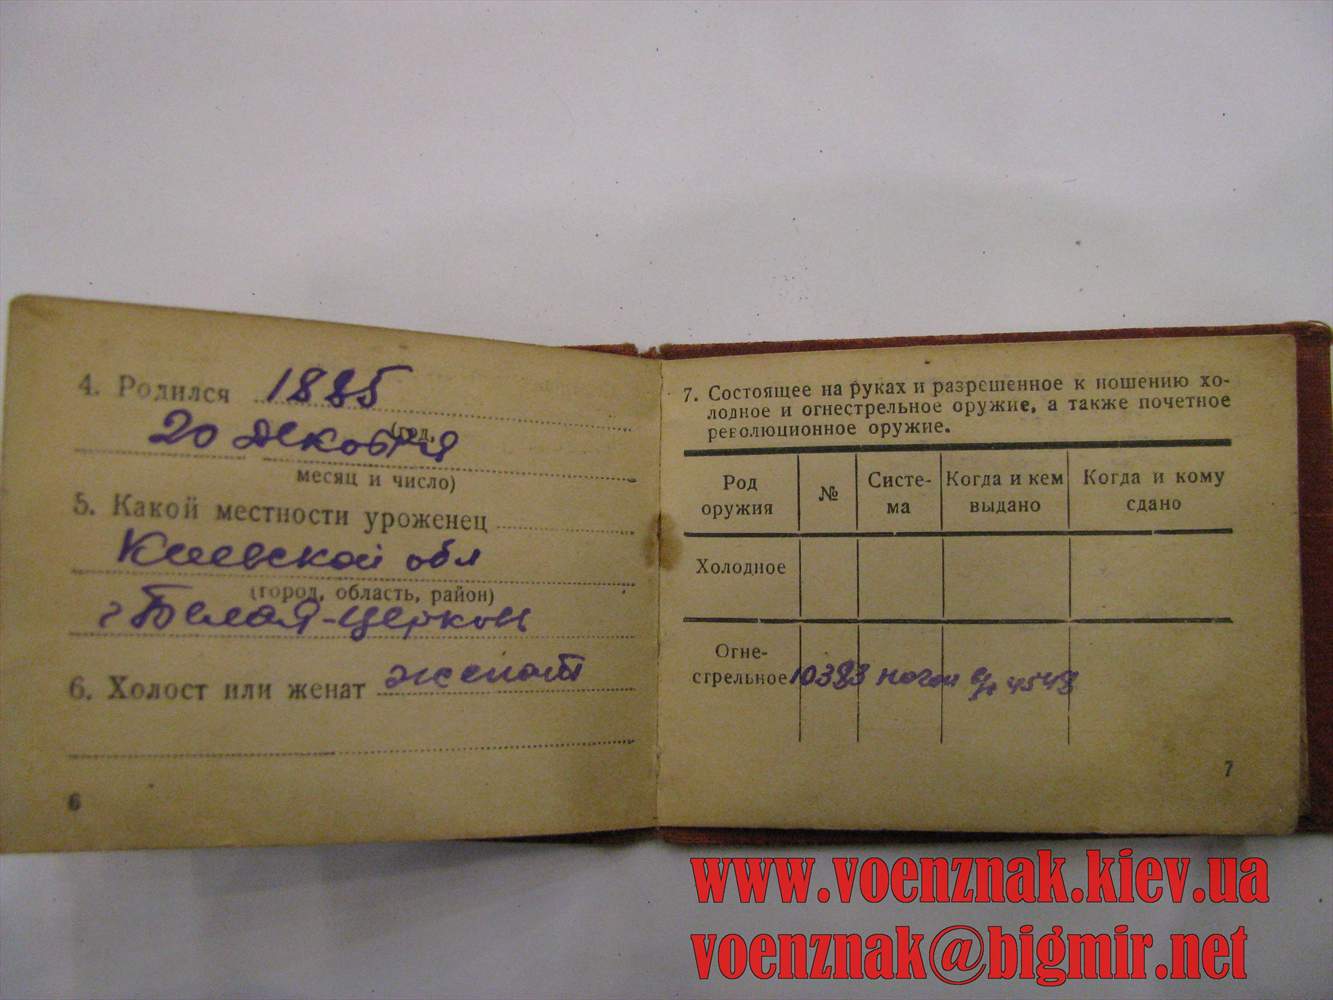 4. Родился 1885
(год,
20 декабря
месяц и число)
5. Какой местности уроженец
Киевской обл
(город, область, район)
г Белая-Церковь
6. Холост или женат женат
6
7. Состоящее на руках и разрешенное к ношению хо-
лодное и огнестрельное оружие, а также почетное
революционное оружие.
Род оружия
№
Систе-
ма
Когда и кем
выдано
Когда и кому
сдано
Холодное
Огне-
стрельное 10383 наган 4548
7
www.voenznak.kiev.ua
voenznak@bigmir.net